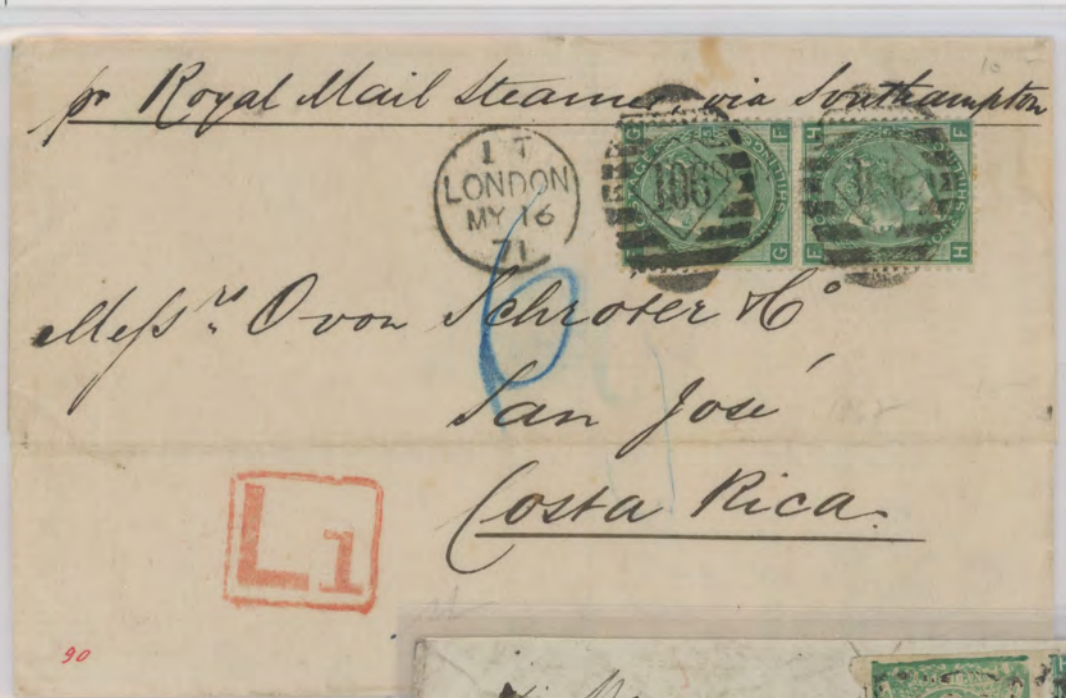 10
pr Royal Mail Steamer, via Southampton
1 T
LONDON
MY 16
71
G F
106
F G
H F
F H
ONE SHILLING
POSTAGE
Messrs. O von Schroter & Co
San José
Costa Rica.
6
L1
90
H